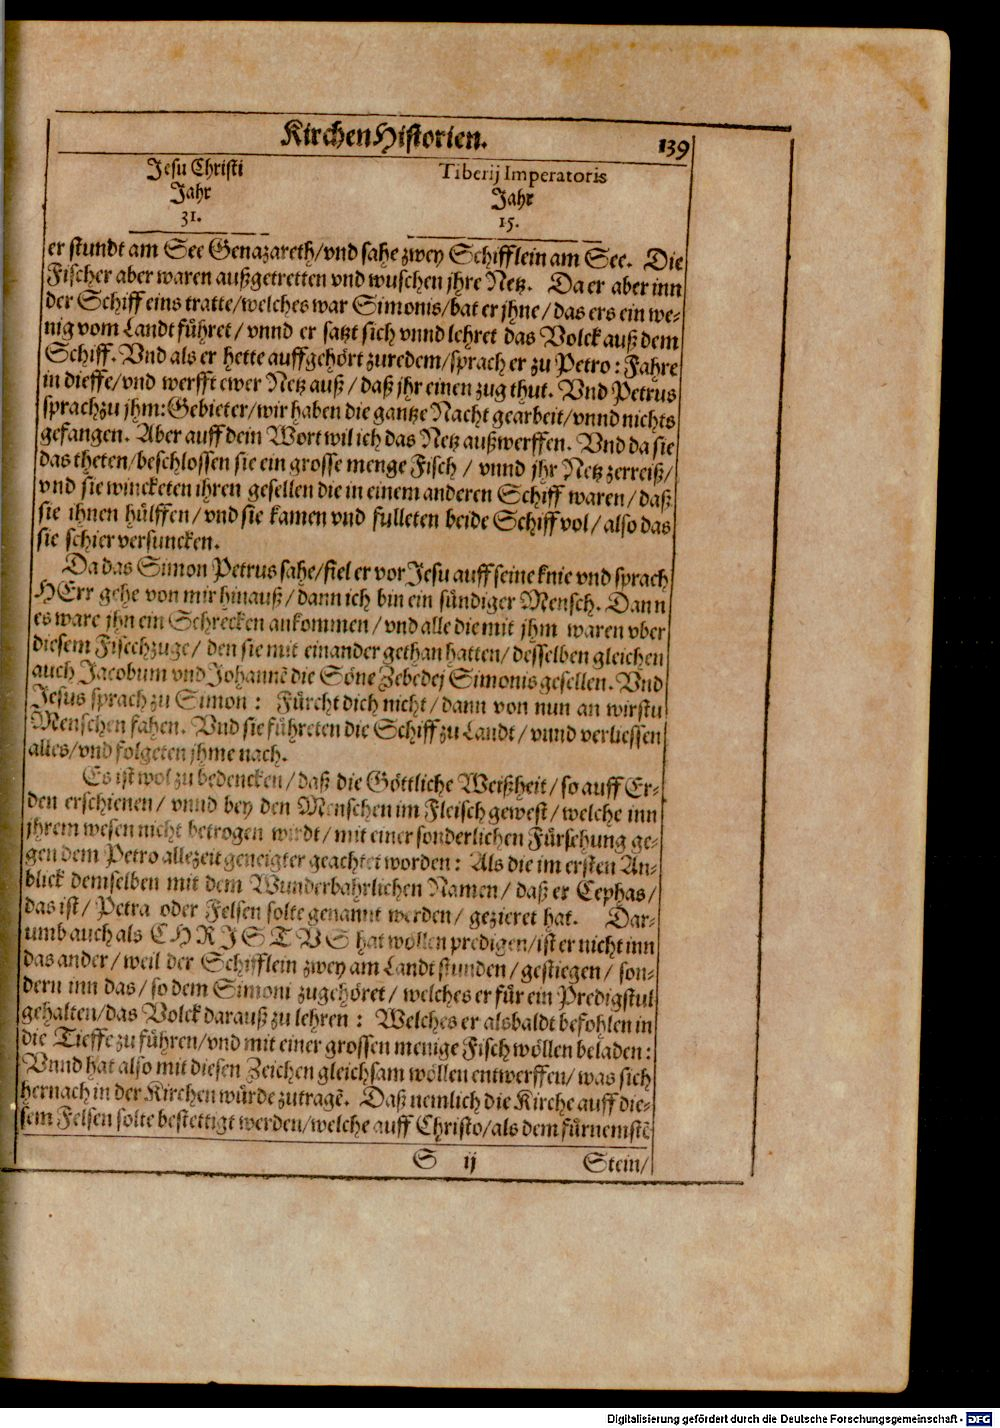 KirchenHistorien. 139
Jesu Christi Tiberij Imperatoris
Jahr Jahr
31. 15.
er stundt am See Genazareth/vnd sahe zwey Schifflein am See. Die
Fischer aber waren außgetretten vnd wuschen jhre Netz. Da er aber inn
der Schiff eins tratte/welches war Simonis/bat er jhne/das ers ein we-
nig vom Landt führet/vnnd er satzt sich vnnd lehret das Volck auß dem
Schiff. Vnd als er hette auffgehört zuredem/sprach er zu Petro: Fahre
in dieffe/vnd werfft ewer Netz auß/daß jhr einen zug thut. Vnd Petrus
sprach zu jhm: Gebieter/wir haben die gantze Nacht gearbeit/vnnd nichts
gefangen. Aber auff dein Wort wil ich das Netz außwerffen. Vnd da sie
das theten/beschlossen sie ein grosse menge Fisch/vnnd jhr Netz zerreiß/
vnd sie wincketen ihren gesellen die in einem anderen Schiff waren/daß
sie ihnen hülffen/vnd sie kamen vnd fulleten beide Schiff vol/also das
sie schier versuncken.
Da das Simon Petrus sahe/fiel er vor Jesu auff seine knie vnd sprach
HErr gehe von mir hinauß/dann ich bin ein sündiger Mensch. Dann
es ware jhn ein Schrecken ankommen/vnd alle die mit jhm waren vber
diesem Fisechzuge/den sie mit einander gethan hatten/desselben gleichen
auch Jacobum vnd Johannē die Söne Zebedej Simonis gesellen. Vnd
Jesus sprach zu Simon: Fürcht dich nicht/dann von nun an wirstu
Menschen fahen. Vnd sie führeten die Schiff zu Landt/vnnd verliessen
alles/vnd folgeten jhme nach.
Es ist wol zu bedencken/daß die Göttliche Weißheit/so auff Er-
den erschienen/vnnd bey den Menschen im Fleisch gewest/welche inn
jhrem wesen nicht betrogen wirdt/mit einer sonderlichen Fürsehung ge-
gen dem Petro allezeit geneigter geachtet worden: Als die im ersten An-
blick demselben mit dem Wunderbahrlichen Namen/daß er Cephas/
das ist/Petra oder Felsen solte genannt werden/gezieret hat. Dar-
umb auch als CHRISTVS hat wöllen predigen/ist er nicht inn
das ander/weil der Schifflein zwey am Landt stunden/gestiegen/son-
dern inn das/so dem Simoni zugehöret/welches er für ein Predigstul
gehalten/das Volck darauß zu lehren: Welches er alsbaldt befohlen in
die Tieffe zu führen/vnd mit einer grossen menige Fisch wöllen beladen:
Vnnd hat also mit diesen Zeichen gleichsam wöllen entwerffen/was sich
hernach in der Kirchen würde zutragē. Daß nemlich die Kirche auff die-
sem Felsen solte bestettigt werden/welche auff Christo/als dem fürnemstē
S ij Stein/
Digitalisierung gefördert durch die Deutsche Forschungsgemeinschaft - DFG